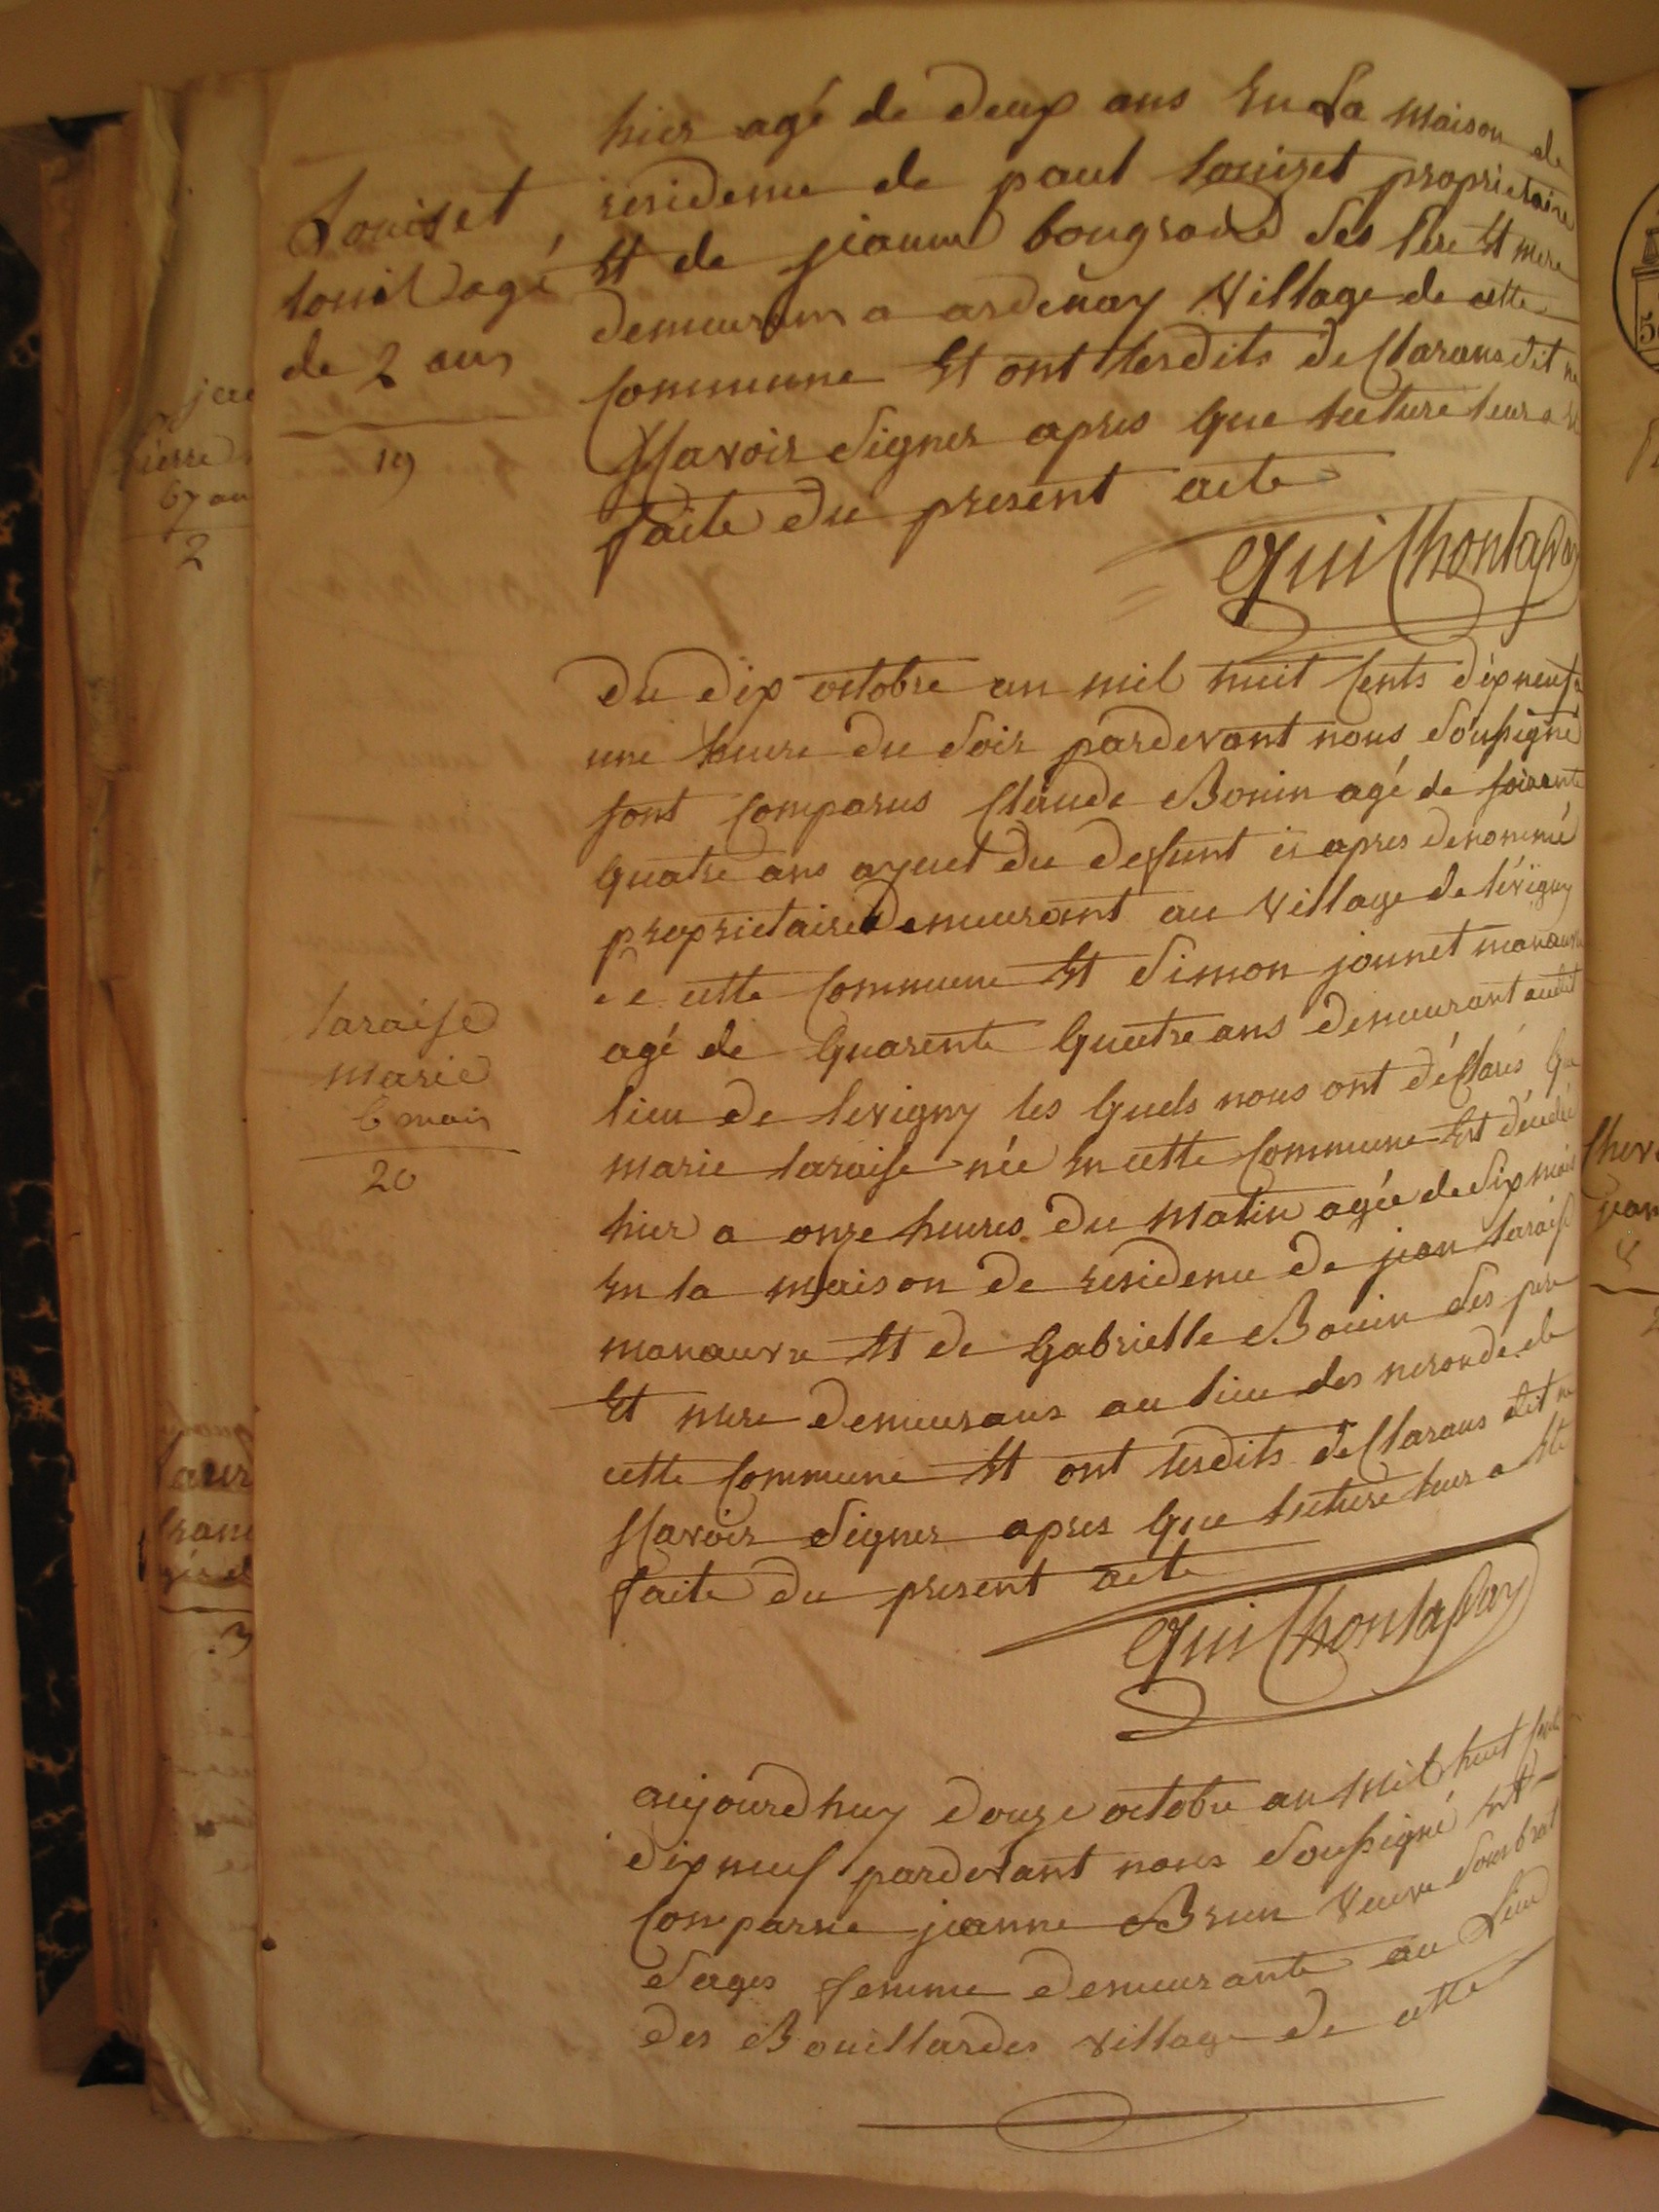 hier agé de deux ans En La maison de
residence de paul Louiset proprietaire
Et de jeanne bougrand Ses Pere Et mere
demeurans a ardenay Village de cette
Commune Et ont lesdits declarans dit ne
Scavoir Signer apres que lecture leur a
faite du present acte
Louiset
agé
de 2 ans
19
du dix octobre an mil huit Cents dix neuf a
une heure du Soir pardevant nous Soussigné
sont Comparus Claude Bonin agé de soixante
quatre ans ayeul du defunt ci apres denommé
proprietaire demeurant au Village de sévigny
de cette Commune Et Simon jonnet manœuvre
agé de quarente quatre ans demeurant audit
lieu de sevigny les quels nous ont déclarés que
marie taraise née En cette Commune Est décédée
hier a onze heures du matin agée de Six mois
En la maison de residence de jean taraise
manœuvre Et de Gabrielle Bonin Ses pere
Et mere demeurans au lieu des neronde de
cette Commune Et ont lesdits declarans dit ne
Scavoir Signer apres que lecture leur a Eté
faite du present acte
taraise
marie
6 mois
20
aujourdhuy douze octobre an Mil huit Cents
dix neuf pardevant nous Soussigné Est
Comparue jeanne Brun Veuve
Sages femme demeurante au Lieu
des Bouillardes Village de cette
jea
pierre
67 an
2
3
Chev
jean